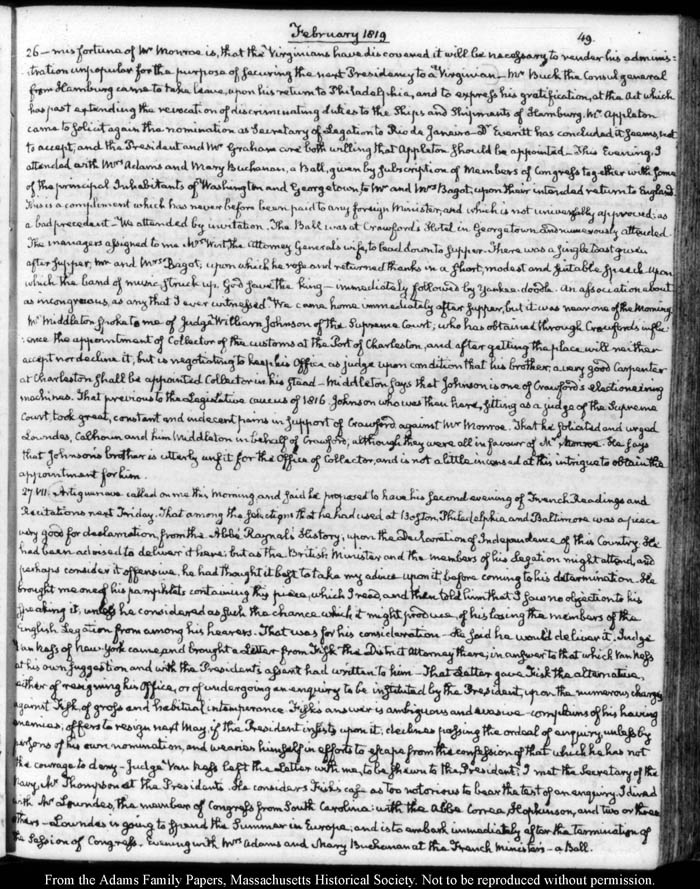 February 1819
49.
26 — misfortune of Mr Monroe is, that the Virginians have discovered it will be necessary to render his adminis-
:tration unpopular for the purpose of securing the next Presidency to a Virginian — Mr Buck the Consul general
from Hamburg came to take leave, upon his return to Philadelphia, and to express his gratification, at the Act which
has past extending the revocation of discriminating duties to the Ships and Shipments of Hamburg. Mr Appleton
came to solicit again the nomination as Secretary of Legation to Rio de Janeiro — Dr Everett has concluded it seems, not
to accept; and the President and Mr Graham are both willing that Appleton should be appointed — This Evening, I
attended with Mrs Adams and Mary Buchanan, a Ball, given by Subscription of Members of Congress together with some
of the principal Inhabitants of Washington and Georgetown, to Mr and Mrs Bagot, upon their intended return to England.
This is a compliment which has never before been paid to any foreign Minister, and which is not universally approved; as
a bad precedent — We attended by invitation. The Ball was at Crawford's Hotel in Georgetown and numerously attended.
The managers assigned to me Mrs Wirt, the Attorney General's wife, to lead down to supper. There was a single toast given
after supper, Mr and Mrs Bagot, upon which he rose and returned thanks in a short, modest and suitable Speech upon
which the band of music struck up. God save the King — immediately followed by Yankee-doodle. An association about
as incongruous, as any that I ever witnessed. We came home immediately after supper, but it was near one of the Morning.
Mr Middleton spoke to me of Judge William Johnson of the Supreme Court, who has obtained through Crawford's influ-
:ence the appointment of Collector of the customs at the Port of Charleston, and after getting the place, will neither
accept nor decline it, but is negotiating to keep his Office as judge upon condition that his brother, a very good Carpenter
at Charleston shall be appointed Collector in his stead — Middleton says that Johnson is one of Crawford's electioneering
machines. That previous to the Legislative caucus of 1816 Johnson who was then here, sitting as a judge of the Supreme
Court took great, constant and indecent pains in support of Crawford against Mr Monroe. That he solicited and urged
Lowndes, Calhoun and him Middleton in behalf of Crawford, although they were all in favour of Mr Monroe. He says
that Johnson's brother is utterly unfit for the Office of Collector, and is not a little incensed at this intrigue to obtain the
appointment for him.
27. VII. Artiguenave called on me this Morning and said he proposed to have his second evening of French Readings and
Recitations next Friday. That among the selections that he had used at Boston, Philadelphia and Baltimore was a piece
very good for declamation, from the Abbé Raynal's History, upon the Declaration of Independence of this Country. He
had been advised to deliver it here; but as the British Minister and the members of his Legation might attend, and
perhaps consider it offensive, he had thought it best to take my advice upon it, before coming to his determination. He
brought me one of his pamphlets containing this piece, which I read, and then told him that I saw no objection to his
speaking it, unless he considered as such the chance which it might produce, of his losing the members of the
English Legation from among his hearers. That was for his consideration — He said he would deliver it. Judge
Van Ness of New-York came, and brought a Letter from Fisk the District Attorney there; in answer to that which Van Ness
at his own suggestion and with the President's assent had written to him — That Letter gave Fisk the alternative,
either of resigning his Office, or of undergoing an enquiry to be instituted by the President, upon the numerous charges
against Fisk, of gross and habitual intemperance. Fisk's answer is ambiguous and evasive — complains of his having
enemies; offers to resign next May, if the President insists upon it; declines passing the ordeal of enquiry, unless by
persons of his own nomination, and wearies himself in efforts to escape from the confession of that which he has not
the courage to deny — Judge Van Ness left the Letter with me, to be shewn to the President; I met the Secretary of the
Navy, Mr Thompson at the Presidents. He considers Fisk's case as too notorious to bear the test of an enquiry. I dined
with Mr Lowndes, the member of Congress from South Carolina: with the Abbé Correa, Hopkinson, and two or three
others — Lowndes is going to spend the Summer in Europe, and is to embark immediately after the termination of
the Session of Congress. Evening with Mrs Adams and Mary Buchanan at the French Minister's — a Ball.
From the Adams Family Papers, Massachusetts Historical Society. Not to be reproduced without permission.